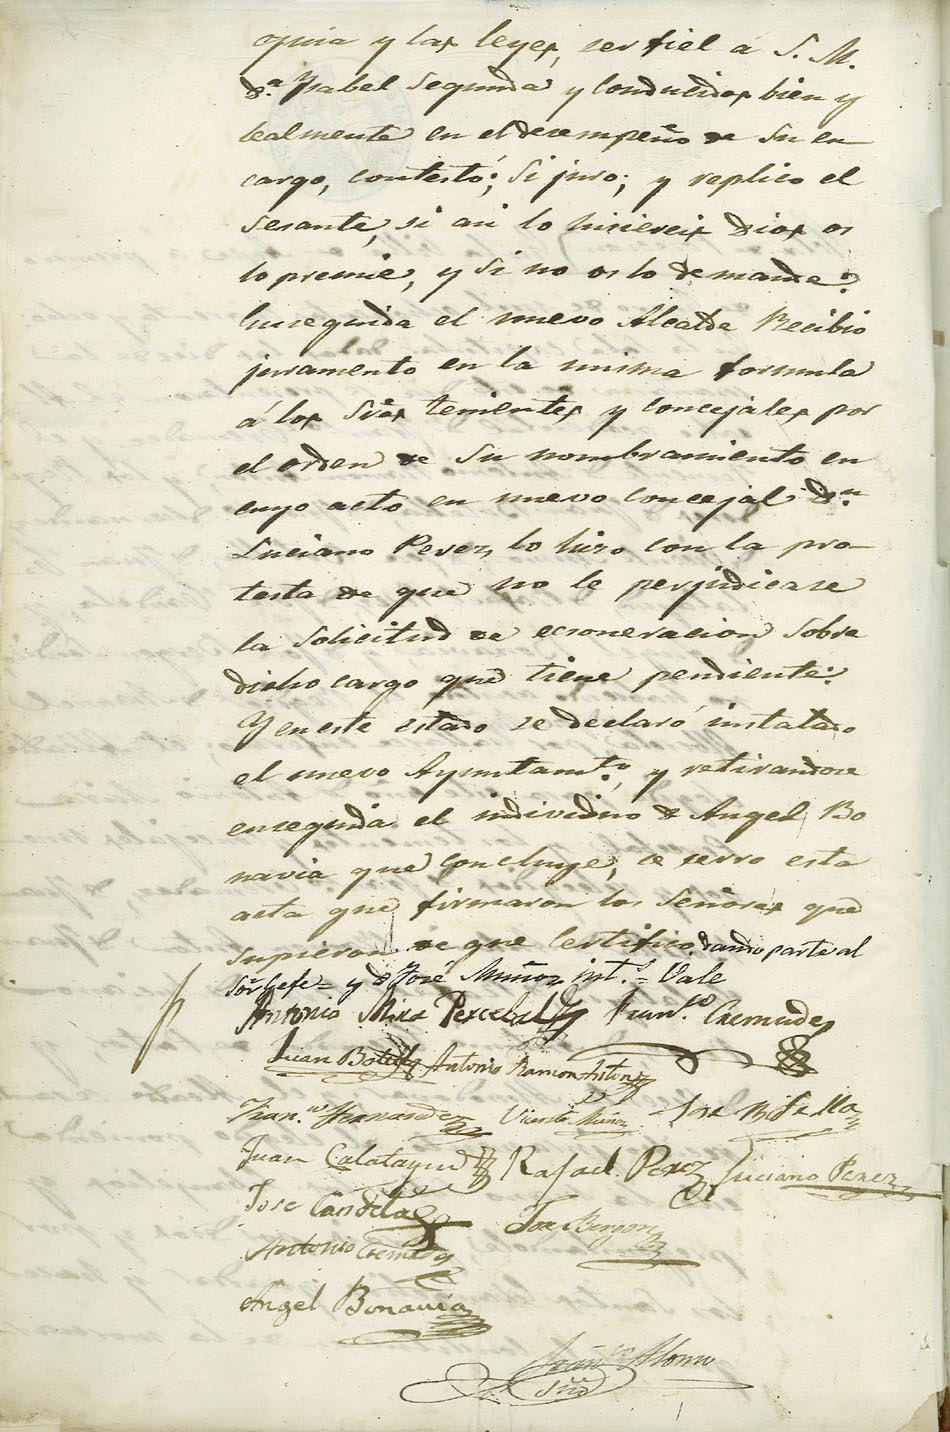 oquia y las leyes, ser fiel á S. M.
D.ª Ysabel Segunda y conducidos bien y
lealmente en el desempeño de su en
cargo, contestó; si juro; y replico el
Sesante, si asi lo hiciereis Dios os
lo premie, y si no os lo demande.
Enseguida el nuevo Alcalde Recibio
juramento en la misma formula
á los Sres tenientes y concejales por
el orden de su nombramiento en
cuyo acto en nuevo concejal Dn.
Luciano Perez, lo hizo con la pro-
testa de que no le perjudicase
la solicitud de ecsoneracion sobre
dicho cargo que tiene pendiente.
Y en este estado se declaró instalado
el nuevo Ayuntamto, y retirandose
enseguida el individuo D Angel Bo
navia que concluye, se serro esta
acta que firmaron los Señores que
supieron de que Certifico. dando parte al
Sor Gefe = y D José Muñoz int.l = Vale
Antonio Mira Percebal Fran.co Cremades
Juan Botella Antonio Ramon Anton
Fran.co Hernandez Vicente Muñoz Jose Botella
Juan Calatayud Rafael Perez Luciano Perez
Jose Candela Jose Bergon
Antonio Cremades
Angel Bonavia
Franco Alonso
Srio